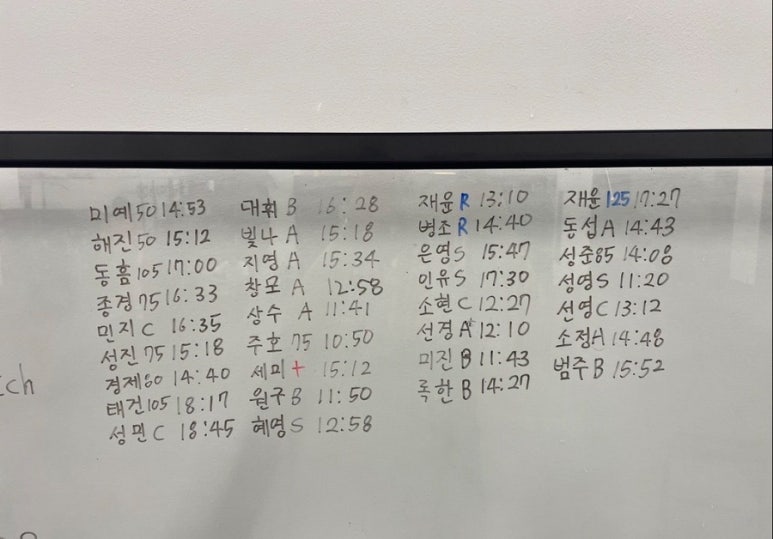 미예 50 14:53
해진 50 15:12
동흠 105 17:00
종경 75 16:33
민지 C 16:35
성진 75 15:18
경제 80 14:40
태건 105 18:17
성민 C 18:45
대휘 B 16:28
빛나 A 15:18
지영 A 15:34
창모 A 12:58
상수 A 11:41
주호 75 10:50
세미 + 15:12
원구 B 11:50
혜영 S 12:58
재윤 R 13:10
병조 R 14:40
은영 S 15:47
인유 S 17:30
소현 C 12:27
선경 A 12:10
미진 B 11:43
록한 B 14:27
재윤 125 17:27
동섭 A 14:43
성준 85 14:08
성영 S 11:20
선영 C 13:12
소정 A 14:48
범주 B 15:52